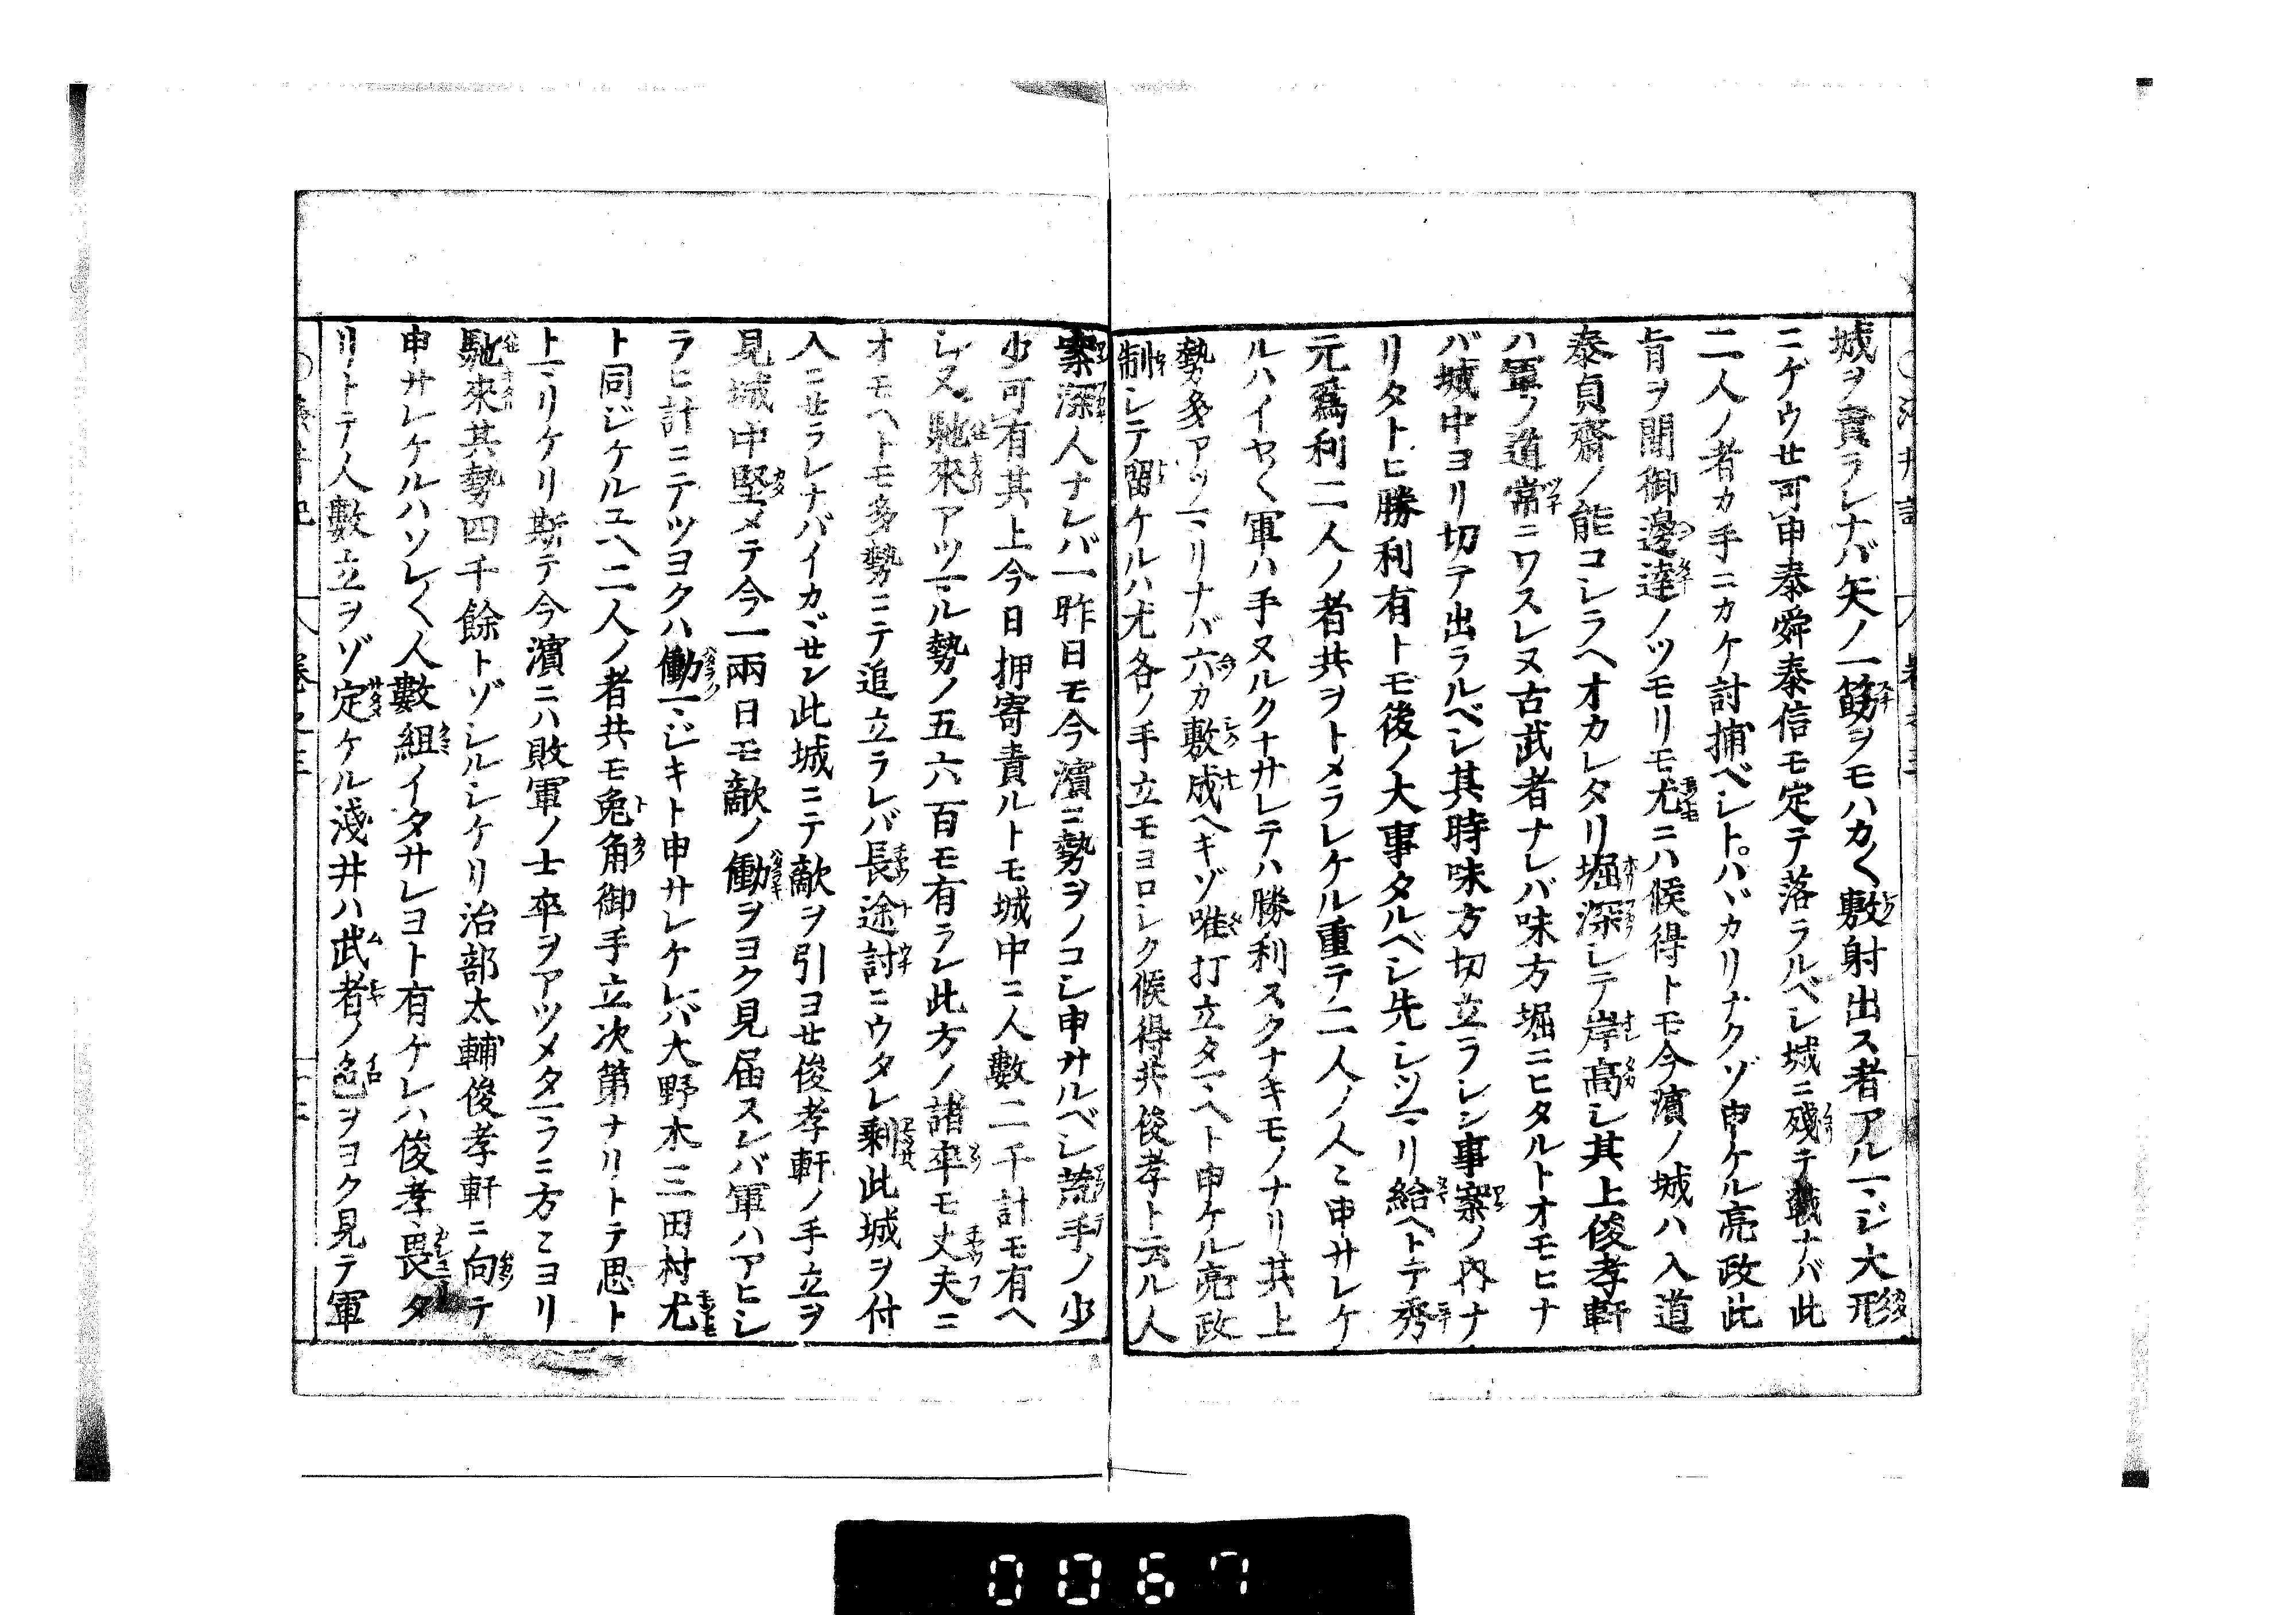 城ヲ責ラレナバ矢ノ一筋ヲモハカ〱敷射出ス者アルヿヽジ大形
ニゲウせ可申秦舜泰信モ定テ落ラルベシ城ニ残テ戰ナバ此
二人ノ者カ手ニカケ討捕ベシトハヾカリナクゾ申ケル亮政此
旨ヲ聞御邊達ノツモリモ尤ニハ候得トモ今濱ノ城ハ入道
泰貞齋ノ能コシラヘオカレタリ堀深シテ岸高シ其上俊孝軒
ハ軍ノ道常ニワスレヌ古武者ナレバ味方堀ニヒタルトオモヒナ
バ城中ヨリ切テ出ラルベシ其時味方切立ラレン事案ノ内ナ
リタトヒ勝利有トモ後ノ大事タルベシ先シヅマリ給ヘトテ秀
元爲利二人ノ者共ヲトメラレケル重テ二人ノ人〻申サレケ
ルハイヤ〱軍ハ手ヌルクナサレテハ勝利スクナキモノナリ其上
勢多アツマリナバ六カ敷成ヘキゾ唯打立タマヘト申ケル亮政
制シテ留ケルハ尤各ノ手立モヨロシク候得共俊孝ト云ル人
案深人ナレバ一昨日モ今濱ニ勢ヲノコシ申サルベシ荒手ノ少
少可有其上今日押寄責ルトモ城中ニ人數二千計モ有ヘ
シ又馳來アツマル勢ノ五六百モ有ラン此方ノ諸卒モ丈夫ニ
オモヘトモ多勢ニテ追立ラレバ長途討ニウタレ剰此城ヲ付
入ニせラレナバイカヾせン此城ニテ敵ヲ引ヨせ俊孝軒ノ手立ヲ
見城中堅メテ今一兩日モ敵ノ働ヲヨク見届スレバ軍ハアヒシ
ラヒ計ニテツヨクハ働マジキト申サレケレバ大野木三田村尤
ト同ジケルユヘ二人ノ者共モ兔角御手立次第ナリトテ思ト
トマリケリ斯テ今濱ニハ敗軍ノ士卒ヲアツメタマフニ方〻ヨリ
馳來其勢四千餘トゾシルシケリ治部太輔俊孝軒ニ向テ
申サレケルハソレ〱人數組イタサレヨト有ケレハ俊孝畏タ
リトテ人數立ヲゾ定ケル淺井ハ武者ノ色ヲヨク見テ軍